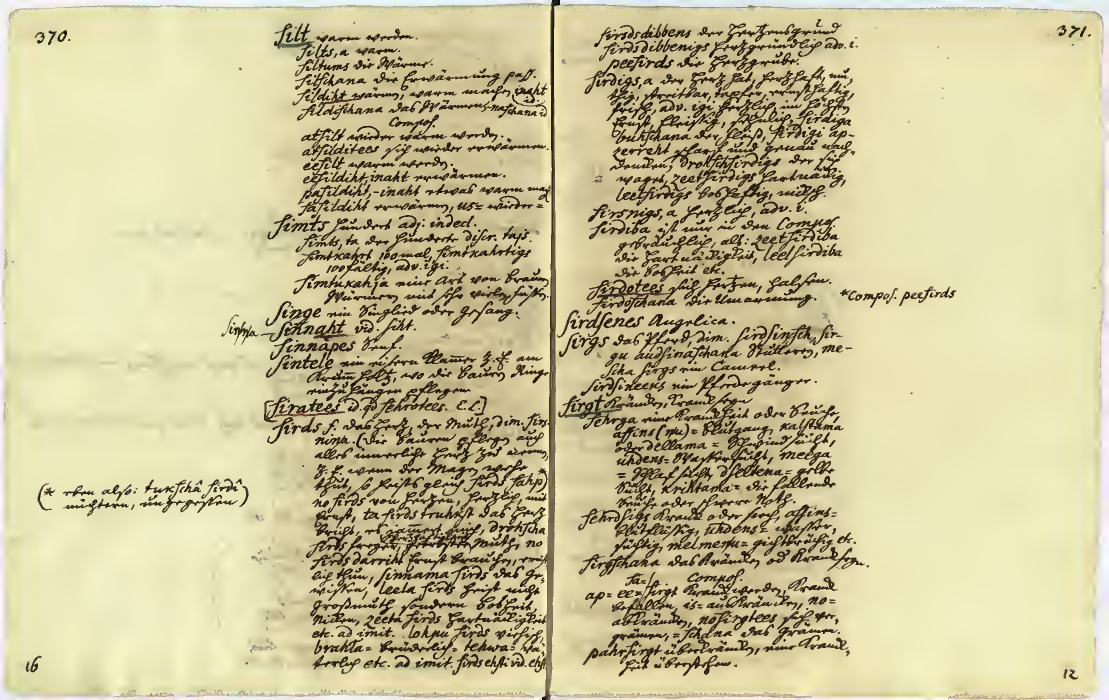 370.
silt warm werden.
silts, a warm.
siltums die Wärme.
silschana die Erwärmung pass.
sildiht wärmen, warm machen, inaht id
sildischana das Wärmen, naschana id
Compos.
atsilt wieder warm werden.
atsilditees sich wieder erwärmen.
eesilt warm werden.
eesildiht, inaht erwärmen.
pasildiht-inaht etwas warm mach
sasildiht erwärmen, us= wieder=
simts hundert adj. indecl.
simts, ta der hunderte discr. tajs.
simtkahrt 100 mal, simtkahrtigs
100 fältig, adv. igi.
simtukahja eine Art von braun
Würmern mit sehr vielen füssen.
singe ein Singlied oder Gesang.
sinnaht vid. siht.
sinnapes Senf.
sintele ein eisern Klammer z. E. am
Krum Holtz, wo die Bauren Ringe
einzuhängen pflegen
[siratees id. qd sehrotees. E.L.]
sirds f. das Hertz, der Muth, dim. sirs-
nina. (die Bauren pflegen auch
alles innerliche Hertz zu nennen,
z. E. wenn der Magen wehe
thut, so heists gleich sirds sahp)*
no sirds von Hertzen, hertzlich, mit
Ernst, ta sirds truhkst das Hertz
bricht, es jammert mich, drohscha
sirds
sirds darriht Ernst brauchen, ernst-
lich thun, sinnama sirds das Ge-
wissen, leela sirds heist nicht
großmuth sondern Bosheit,
nicken, zeeta sirds Hartnäckigkeit
etc. ad imit. lohpu sirds viehisch,
brahla= brüderlich= tehwa= vä-
terlich etc. ad imit. sirdsehsti vid. ehst
(* eben also: tukschâ sirdî
nüchtern, ungegessen)
16
371.
sirdsdibbens der Hertzensgrund
sirdsdibbenigs hertzgründlich adv. i.
peesirds die Hertzgrube.
sirdigs, a der Hertz hat, hertzhaft, mu-
thig, streitbar, tapfer, ernsthaftig,
frisch, adv. igi hertzlich, im hohen
Ernst, fleissig, sirdiga
buhschana der fleiß, sirdigi ap-
zerreht scharf und genau nach-
dencken, drohschsirdigs der sich
waget, zeetsirdigs hartnäckig,
leelsirdigs boshaftig, nücksch.
sirsnigs, a hertzlich, adv. i.
sirdiba ist nur in den Compos.
gebräuchlich, als: zeetsirdiba
die Hartnäckigkeit, leelsirdiba
die Bosheit etc.
sirdotees sich hertzen, halsen.
sirdoschana die Umarmung. *Compos. peesirds
sirdsenes Angelica.
sirgs das Pferd, dim. sirdsinsch, sir-
gu audsinaschana Stuterey, me-
scha sirgs ein Cameel.
sirdsineeks ein Pferdegänger.
sirgt kräncken, kranck seyn
sehrga eine Kranckheit oder Seuche,
assins (nu)= Blutgang, kalstama
oder dellama= Schwindsucht,
uhdens= Wassersucht, meega
= Schlafsucht, dseltena= gelbe
Sucht, krihtama= die fallende
Seuche oder schwere Noth.
sehrdsigs Kranck oder siech, assins=
blutflüssig, uhdens= wasser,
süchtig, melmenu= gichtbrüchig etc.
sirgschana das Kräncken od Kranck seyn.
sa= Compos.
ap= ee= sirgt kranck werden, Kranck
befallen, is= auskräncken, no=
abkräncken, nosirgtees sich ver-
grämen, =schana das Grämen.
pahrsirgt überkräncken, eine Kranck-
heit überstehen.
12